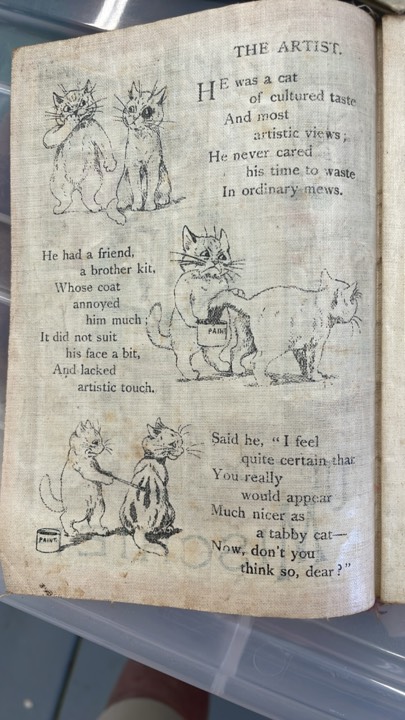 THE ARTIST.
HE was a cat
of cultured taste
And most
artistic views;
He never cared
his time to waste
In ordinary mews.
He had a friend,
a brother kit,
Whose coat
annoyed
him much;
It did not suit
his face a bit,
And lacked
artistic touch.
PAINT
Said he, "I feel
quite certain that
You really
would appear
Much nicer as
a tabby cat—
Now, don't you
think so, dear?"
PAINT